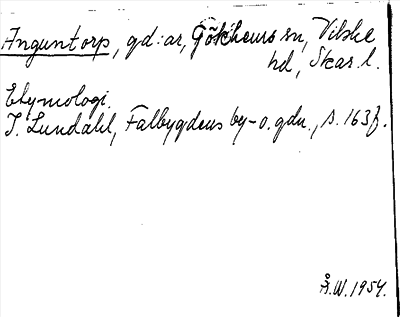 Anguntorp, gd:ar, Gökhems sn, Vilske
hd, Skar. l.
Etymologi.
I. Lundahl, Falbygdens by- o. gdn., s. 163 f.
Å.W. 1954.